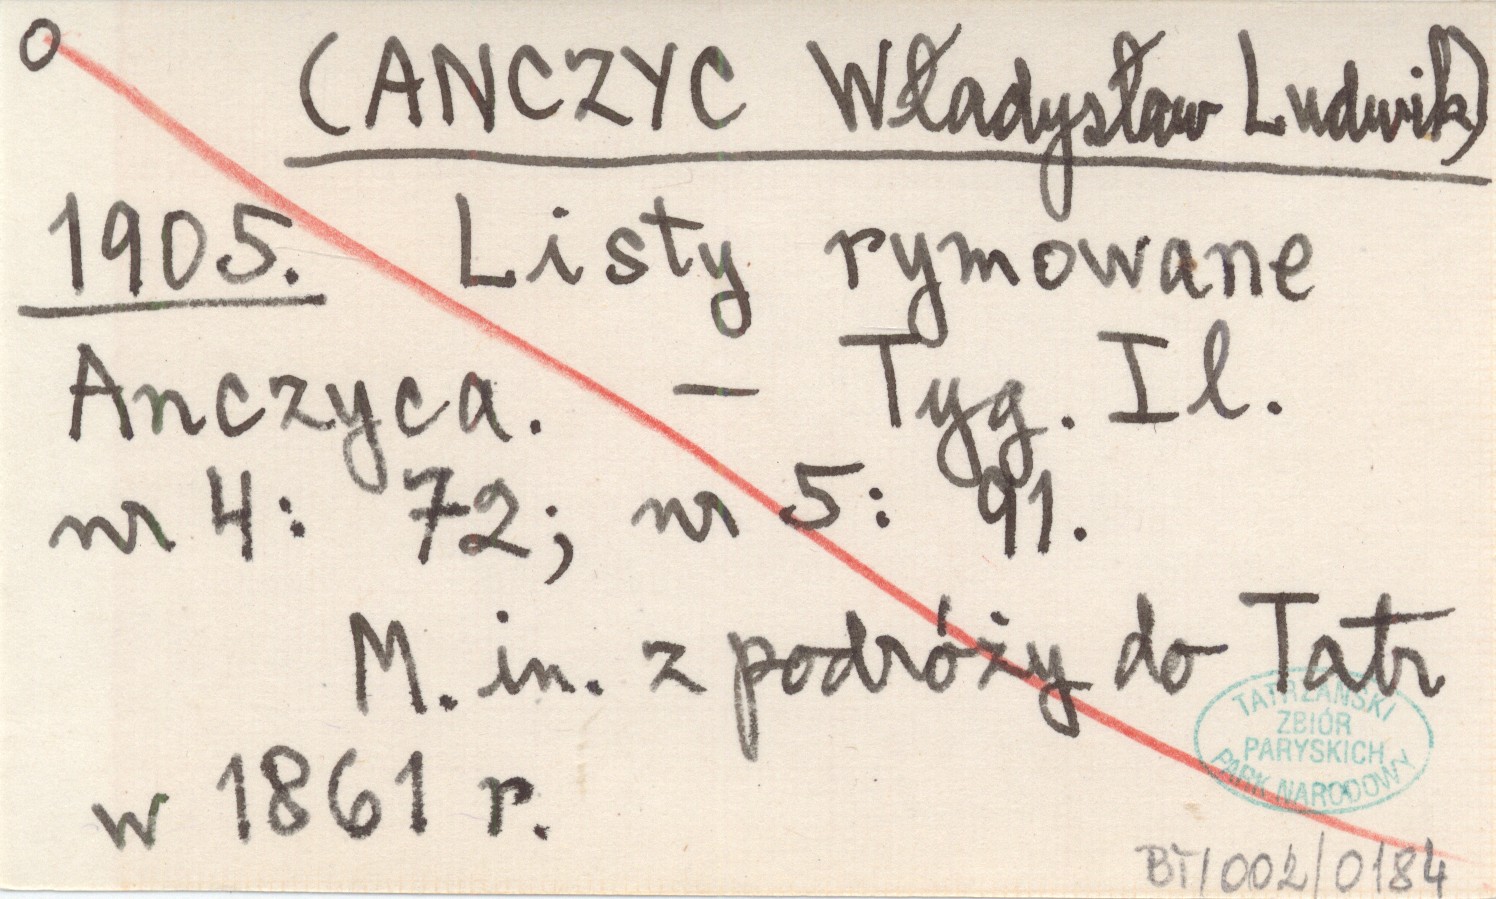 O (ANCZYC Władysław Ludwik)
1905. Listy rymowane
Anczyca. – Tyg. Il.
nr 4: 72; nr 5: 91.
M. in. z podróży do Tatr
w 1861 r.
TATRZAŃSKI
ZBIÓR
PARYSKICH
PARK NARODOWY
BT/002/0184